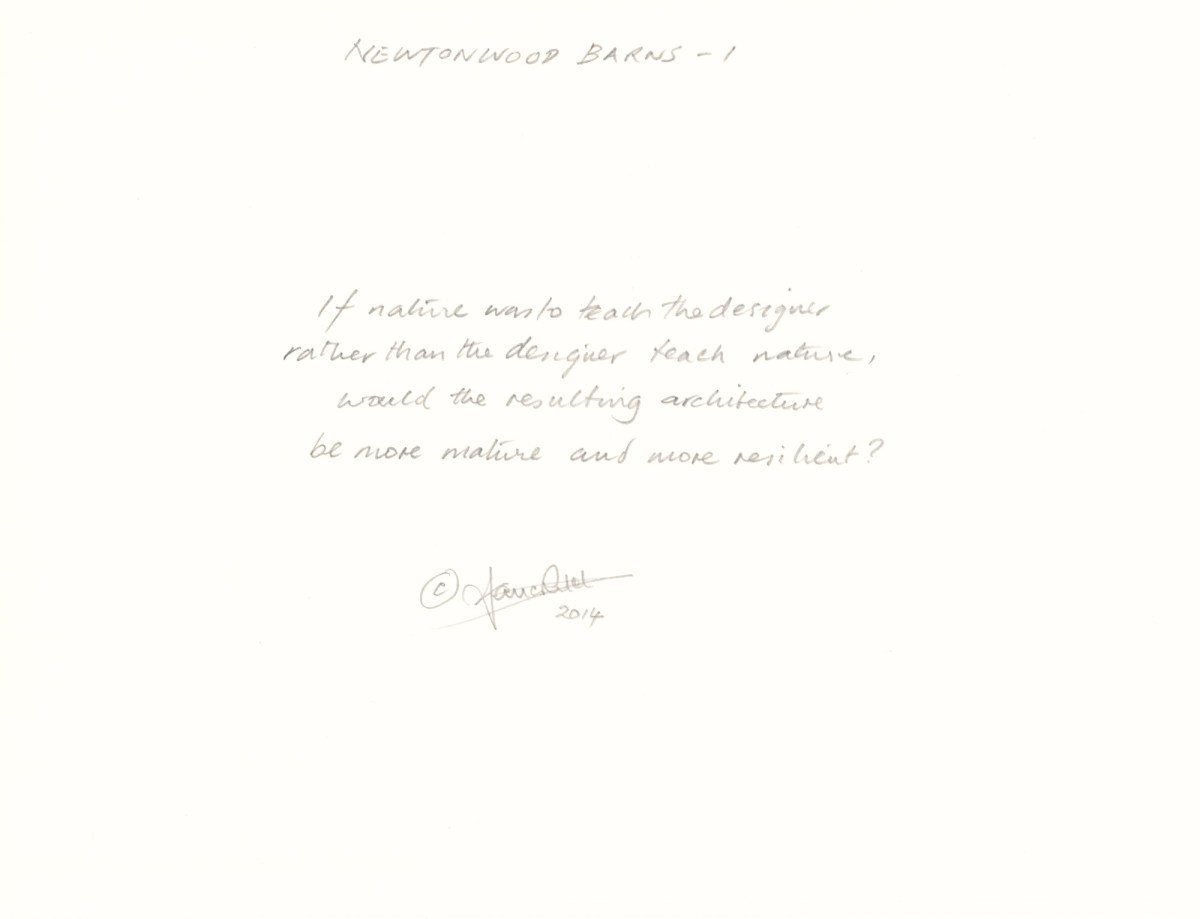 NEWTONWOOD BARNS - 1
If nature was to teach the designer
rather than the designer teach nature,
would the resulting architecture
be more mature and more resilient?
©
2014